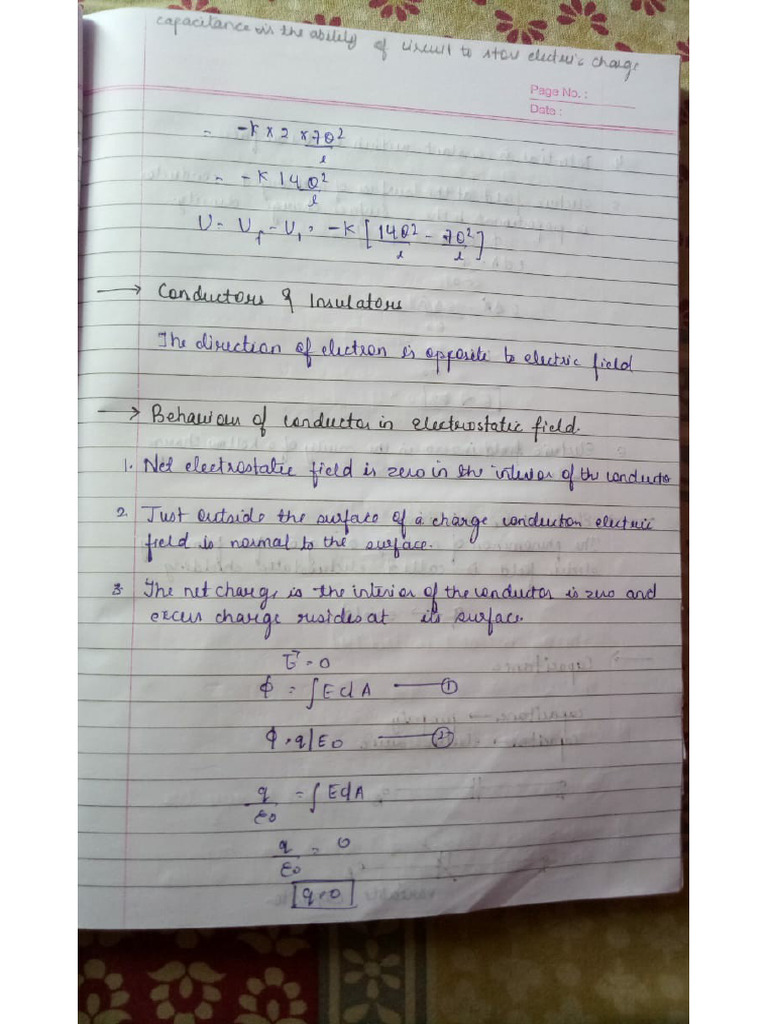 capacitance is the ability of circuit to stor electric charge
Page No. :
Date :
= -K × 2 × 7Q²
l
= -K 14Q²
l
U = U_f - U_i = -K [14Q²/l - 7Q²/l]
→ Conductors & Insulators
The direction of electron is opposite to electric field
→ Behaviour of conductor in electrostatic field.
1. Net electrostatic field is zero in the interior of the conductor
2. Just outside the surface of a charge conductor electric
field is normal to the surface.
3. The net charge is the interior of the conductor is zero and
excess charge resides at its surface.
E⃗ = 0
ϕ = ∫EdA — ①
ϕ = q/ε0 — ②
q/ε0 = ∫EdA
q/ε0 = 0
q = 0